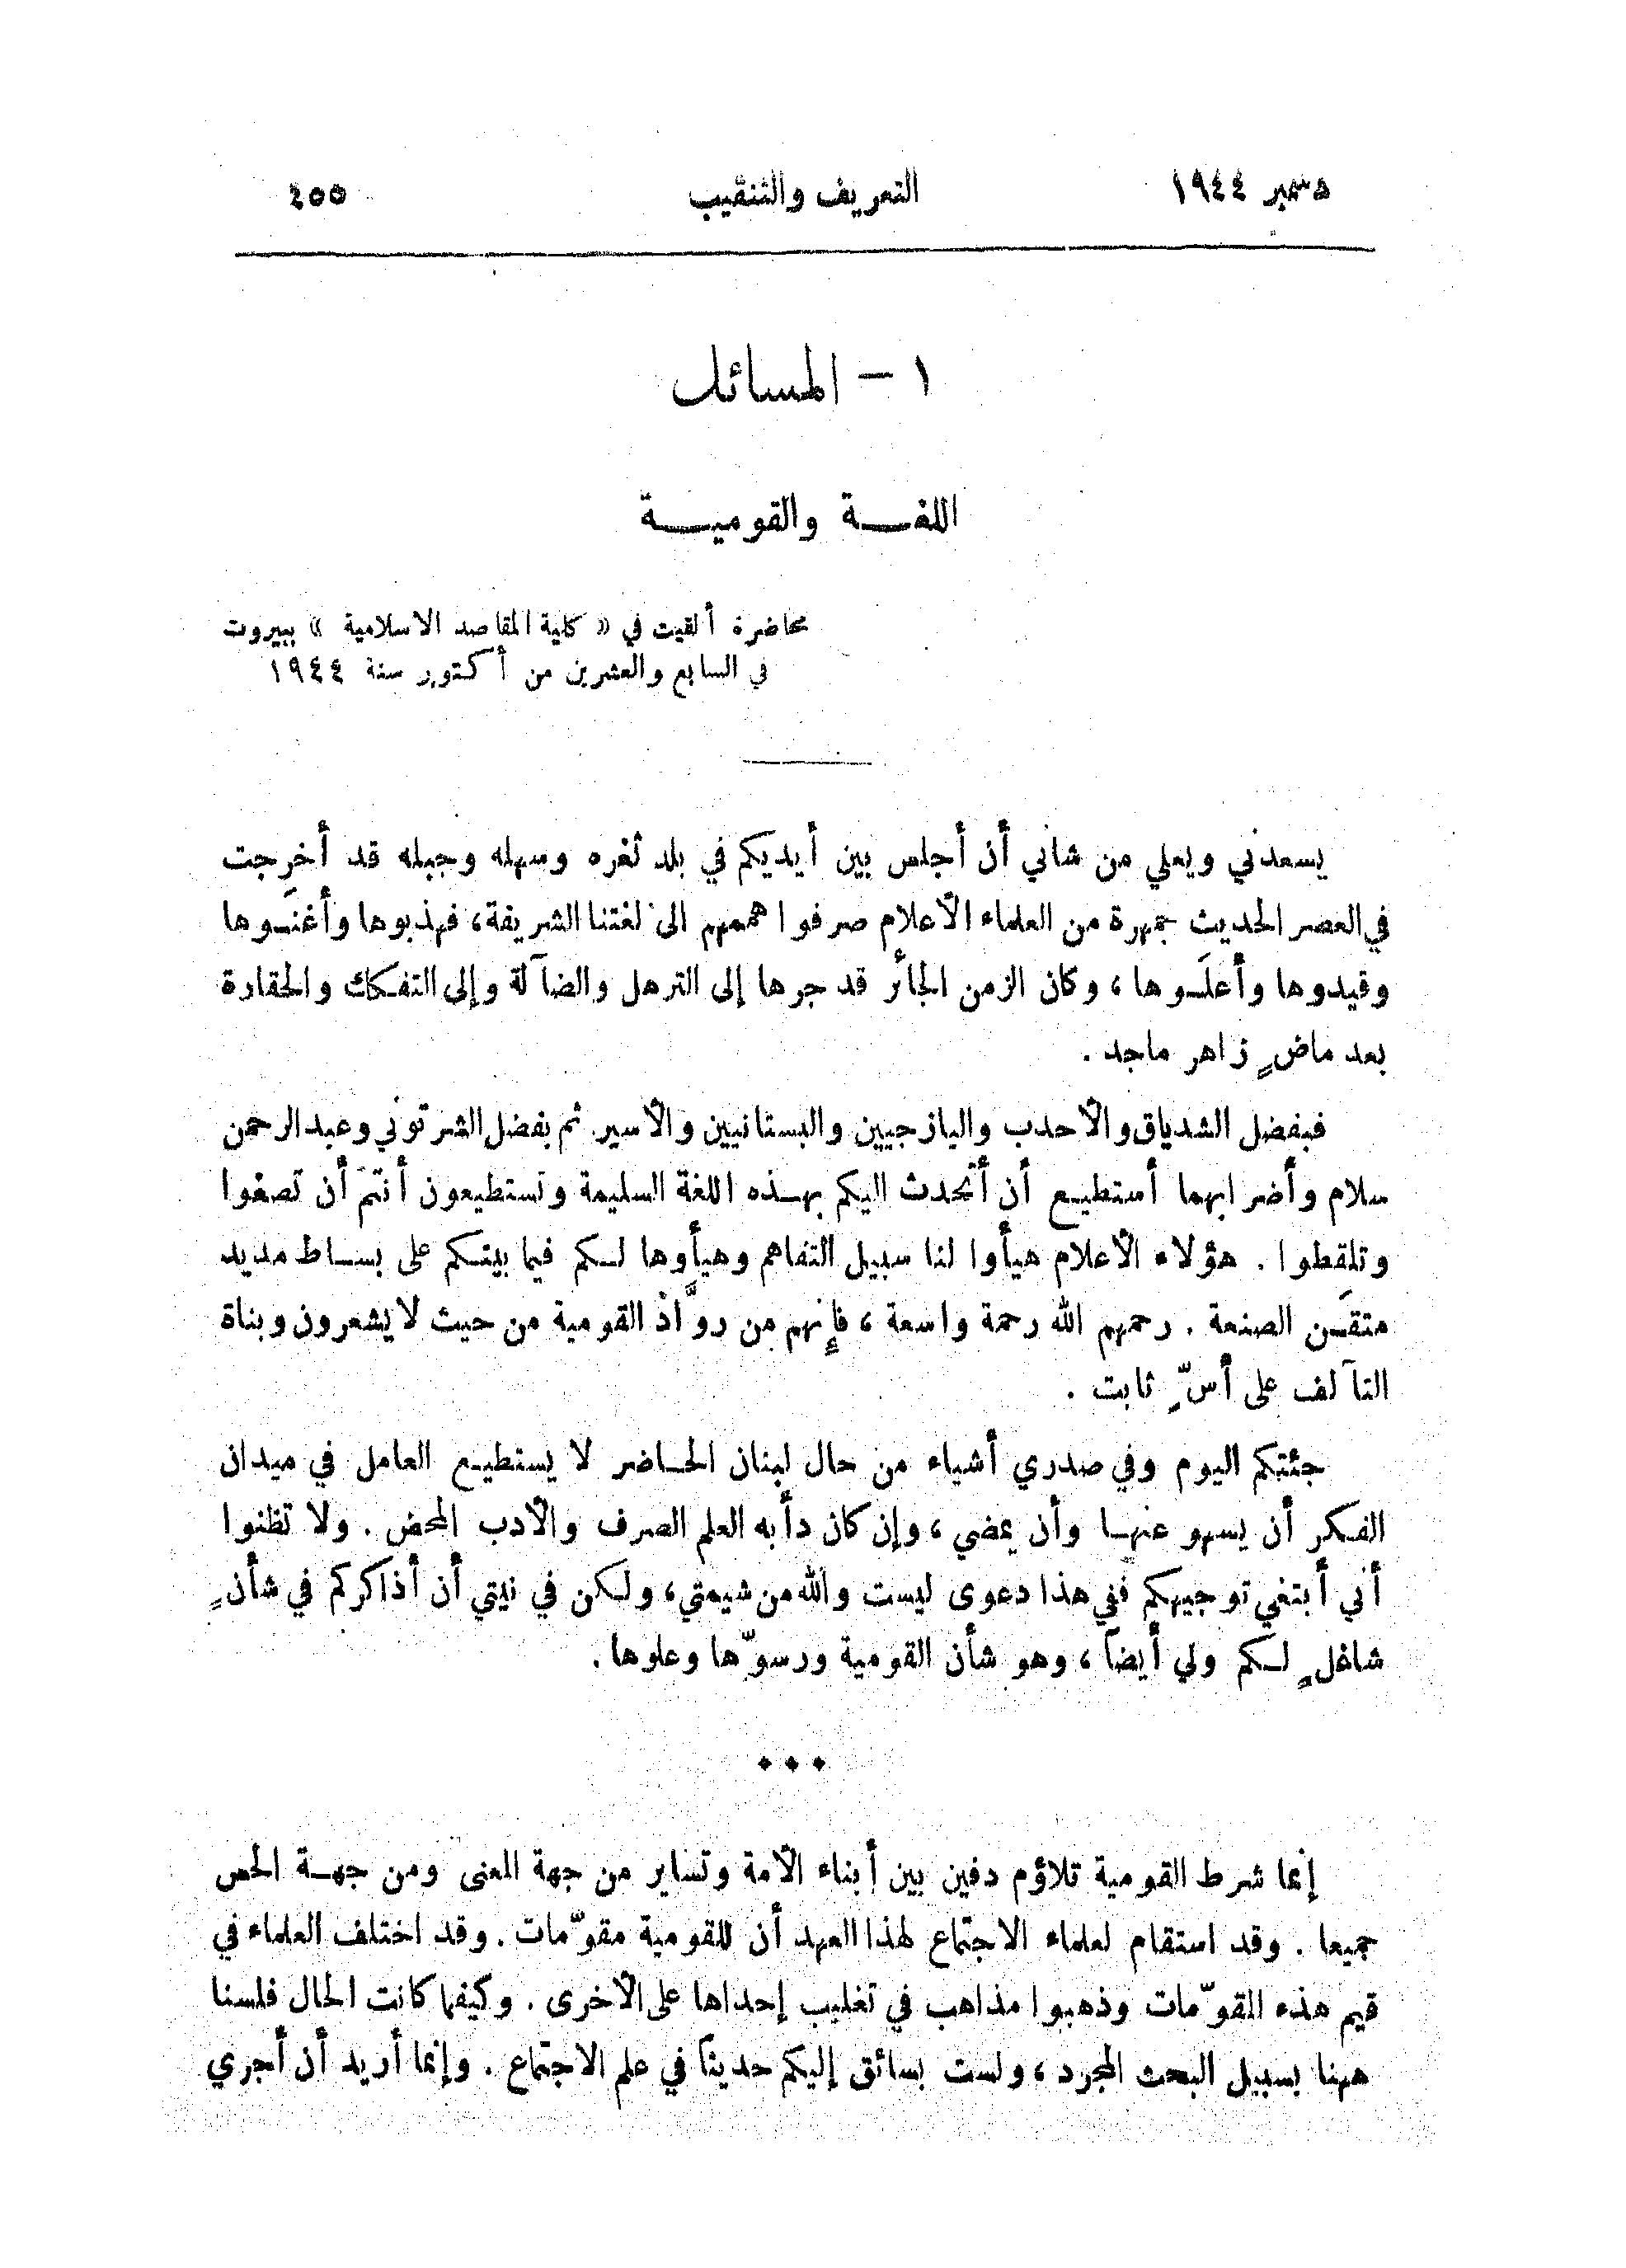 دسمبر ١٩٤٤ التعريف والتنقيب ٤٥٥
١ - المسائل
اللغة والقومية
محاضرة ألقيت في « كلية المقاصد الاسلامية » ببيروت
في السابع والعشرين من أكتوبر سنة ١٩٤٤
يسعدني ويعلي من شاني أن أجلس بين أيديكم في بلد ثغره وسهله وجبله قد أخرجت
في العصر الحديث جمهرة من العلماء الأعلام صرفوا هممهم الى لغتنا الشريفة، فهذبوها وأغنَوها
وقيدوها وأعلَوها ، وكان الزمن الجائر قد جرها إلى الترهل والضآلة وإلى التفكك والحقارة
بعد ماضٍ زاهر ماجد .
فبفضل الشدياق والأحدب واليازجيين والبستانيين والأسير. ثم بفضل الشرتوني وعبد الرحمن
سلام وأضرابهما أستطيع أن أتحدث اليكم بهذه اللغة السليمة وتستطيعون أنتم أن تصغوا
وتلقطوا . هؤلاء الأعلام هيأوا لنا سبيل التفاهم وهيأوها لكم فيما بينكم على بساط مديد
متقَن الصنعة . رحمهم الله رحمة واسعة ، فإنهم من روّاد القومية من حيث لا يشعرون وبناة
التآلف على أسٍّ ثابت .
جئتكم اليوم وفي صدري أشياء من حال لبنان الحاضر لا يستطيع العامل في ميدان
الفكر أن يسهو عنها وأن يمضي ، وإن كان دأبه العلم الصرف والأدب المحض . ولا تظنوا
أني أبتغي توجيهكم ففي هذا دعوى ليست والله من شيمتي، ولكن في نيتي أن أذاكركم في شأنٍ
شاغلٍ لكم ولي أيضاً ، وهو شأن القومية ورسوّها وعلوها .
...
إنما شرط القومية تلاؤم دفين بين أبناء الأمة وتساير من جهة المعنى ومن جهة الحس
جميعا . وقد استقام لعلماء الاجتماع لهذا العهد أن للقومية مقوّمات . وقد اختلف العلماء في
قيم هذه المقوّمات وذهبوا مذاهب في تغليب إحداها على الأخرى . وكيفما كانت الحال فلسنا
ههنا بسبيل البحث المجرد ، ولست بسائق إليكم حديثاً في علم الاجتماع . وإنما أريد أن أجري